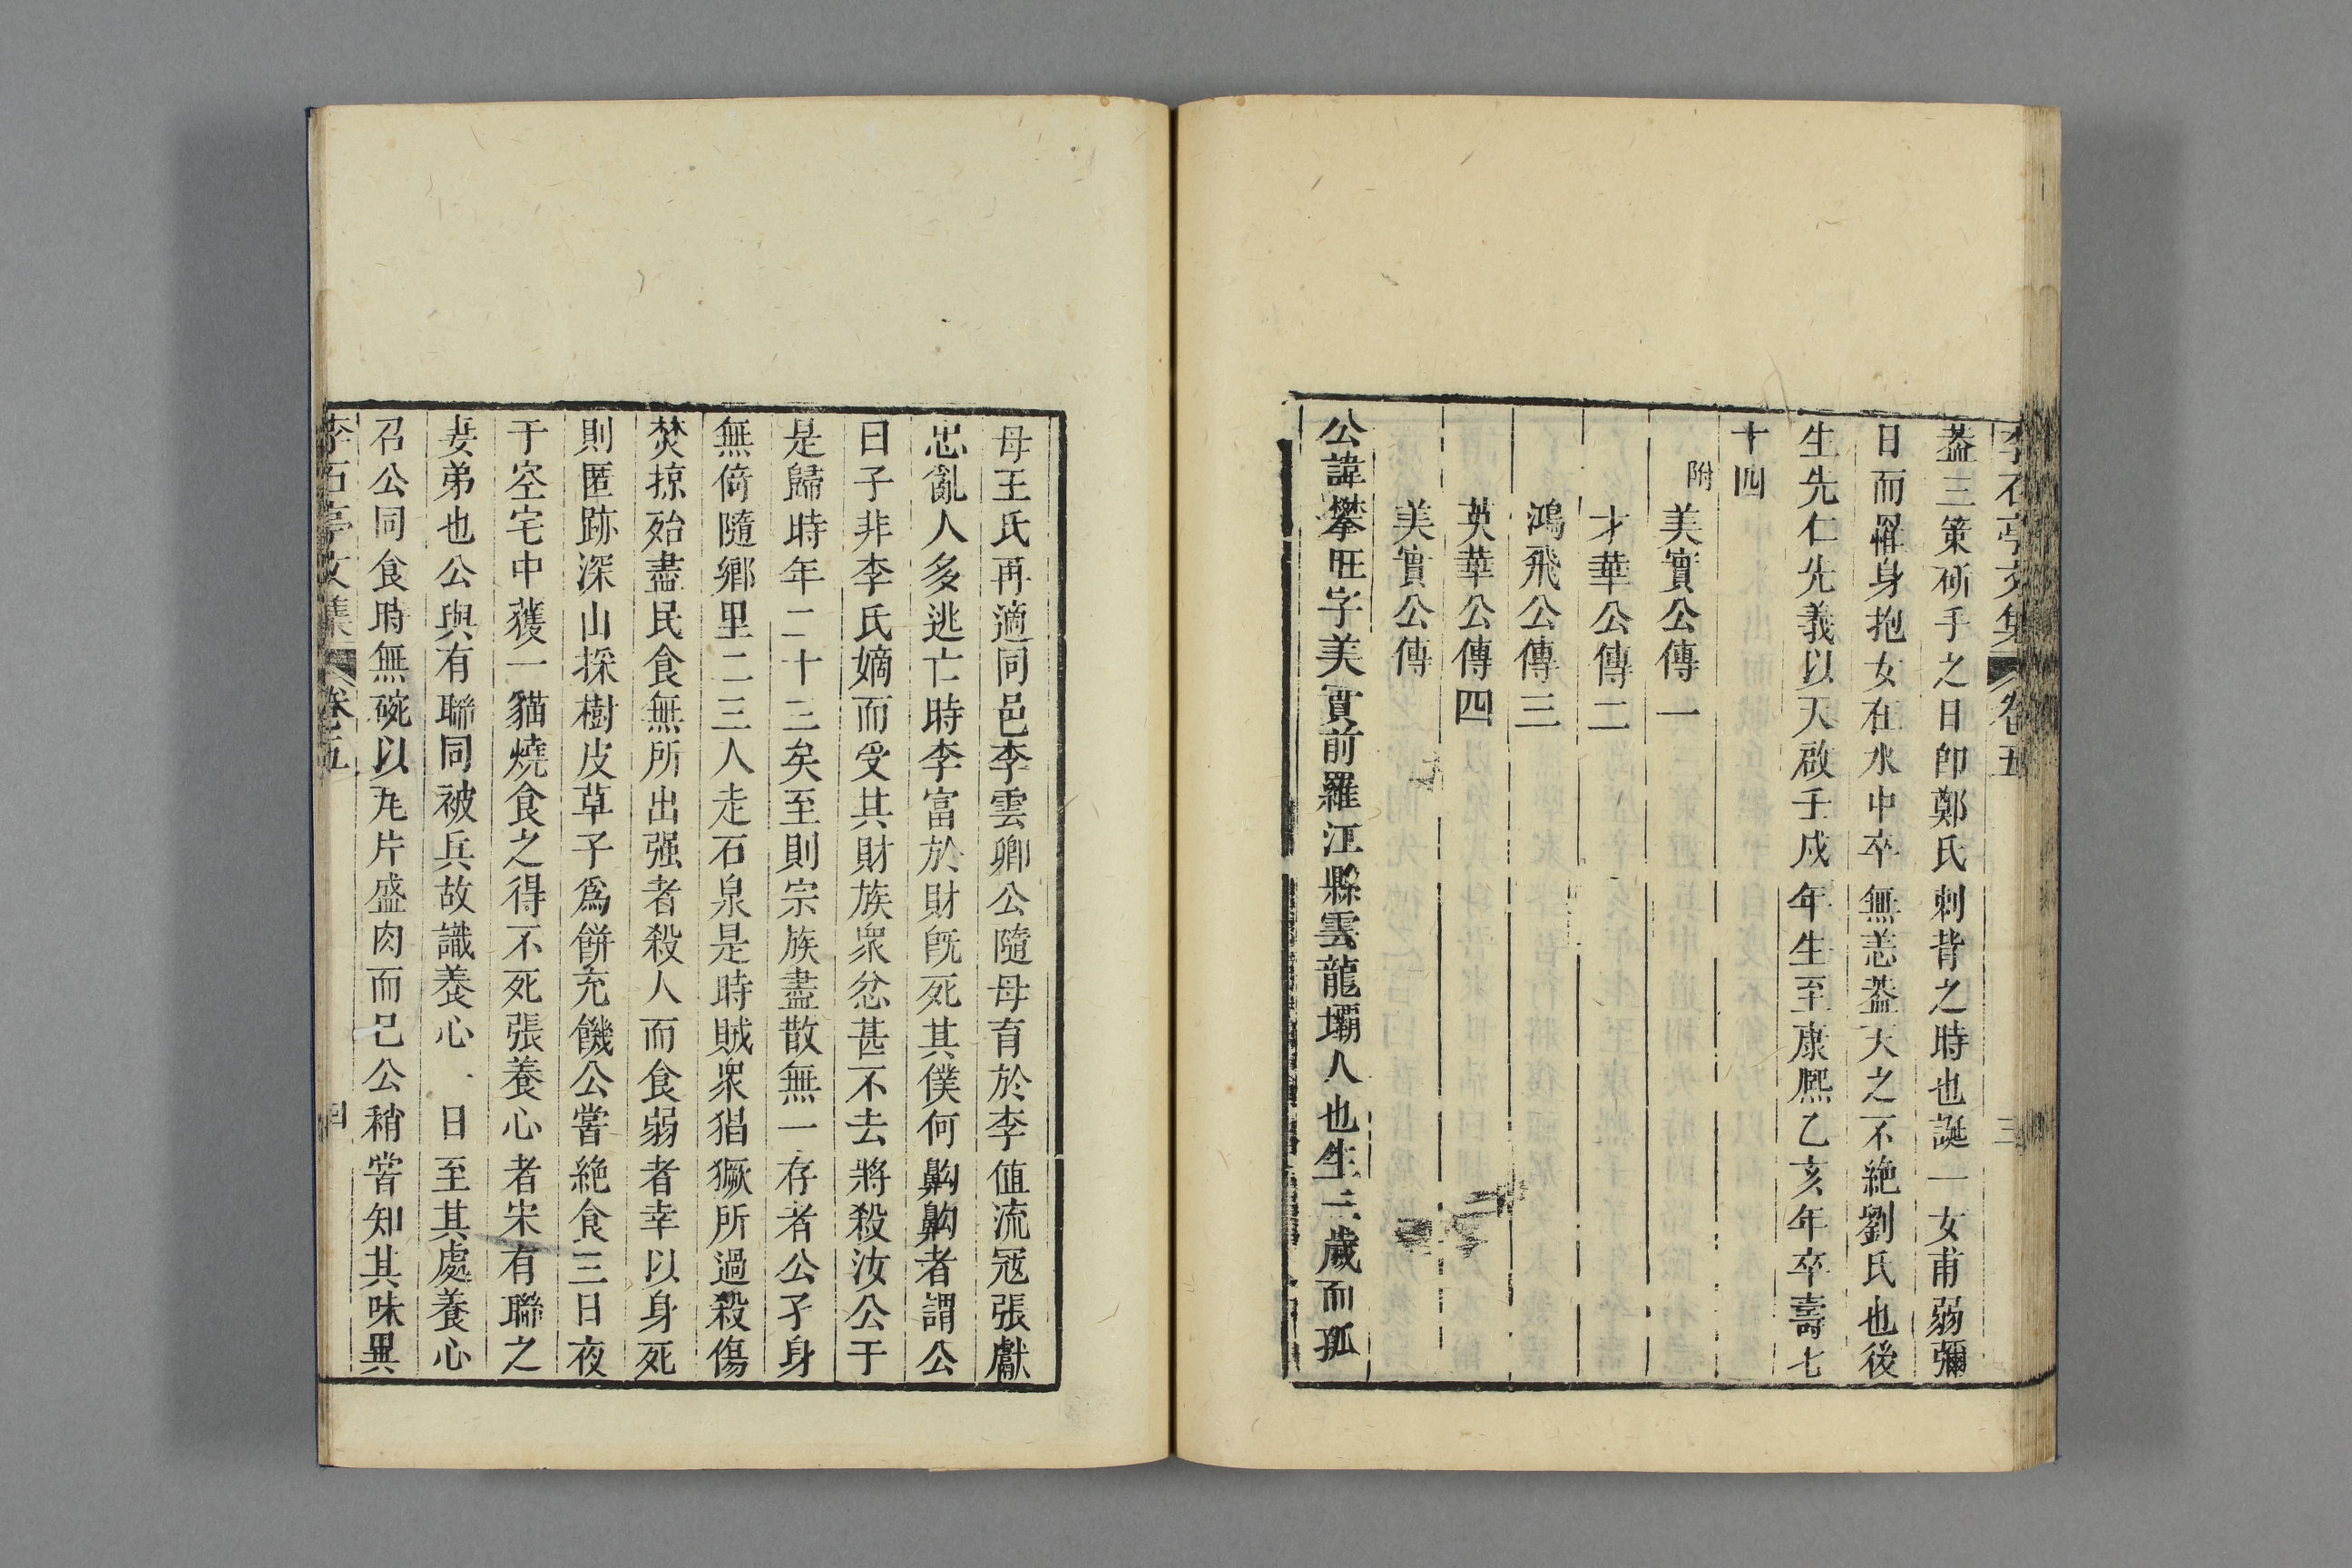 李石亭文集 卷五 三
葢三策斫手之日卽鄭氏刺背之時也誕一女甫弱彌
日而罹身抱女在水中卒無恙葢天之不絶劉氏也後
生先仁先義以天啟壬戍年生至康熙乙亥年卒壽七
十四
附美實公傳一
才華公傳二
鴻飛公傳三
英華公傳四
美實公傳
公諱攀旺字美實前羅江縣雲龍壩人也生三歲而孤
母王氏再適同邑李雲卿公隨母育於李値流冦張獻
忠亂人多逃亡時李富於財旣死其僕何鼽鼽者謂公
曰子非李氏嫡而受其財族衆忿甚不去將殺汝公于
是歸時年二十三矣至則宗族盡散無一存者公孑身
無倚隨鄉里二三人走石泉是時賊衆猖獗所過殺傷
焚掠殆盡民食無所出强者殺人而食弱者幸以身死
則匿跡深山採樹皮草子爲餅充饑公嘗絶食三日夜
于空宅中獲一貓燒食之得不死張養心者宋有聯之
妻弟也公與有聯同被兵故識養心一日至其處養心
召公同食時無碗以瓦片盛肉而已公稍嘗知其味異
李石亭文集 卷五 四